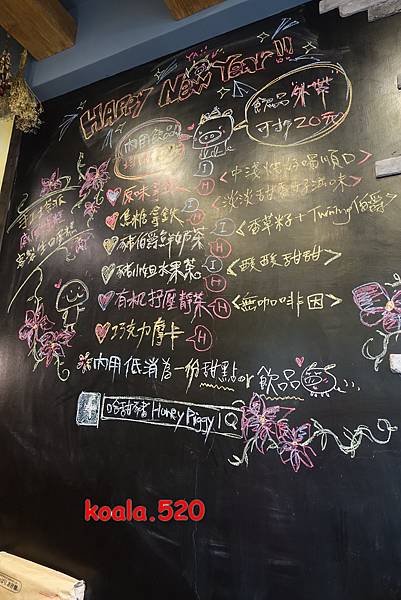 HAPPY New YEAR!!
飲品 外帶
可折20元
內用飲品
I <中淺焙好喝順口>
♡原味 H <淡淡甜香草滋味>
♡焦糖拿鐵 I H <香草籽+Twining伯爵>
♡豬伯爵鮮奶茶 I H
♡豬小妞水果茶 I H <酸酸甜甜>
♡有机 H <無咖啡因>
♡巧克力摩卡 H
※內用低消為一份甜點or飲品
哈甜豬 Honey Piggy IQ
koala.520